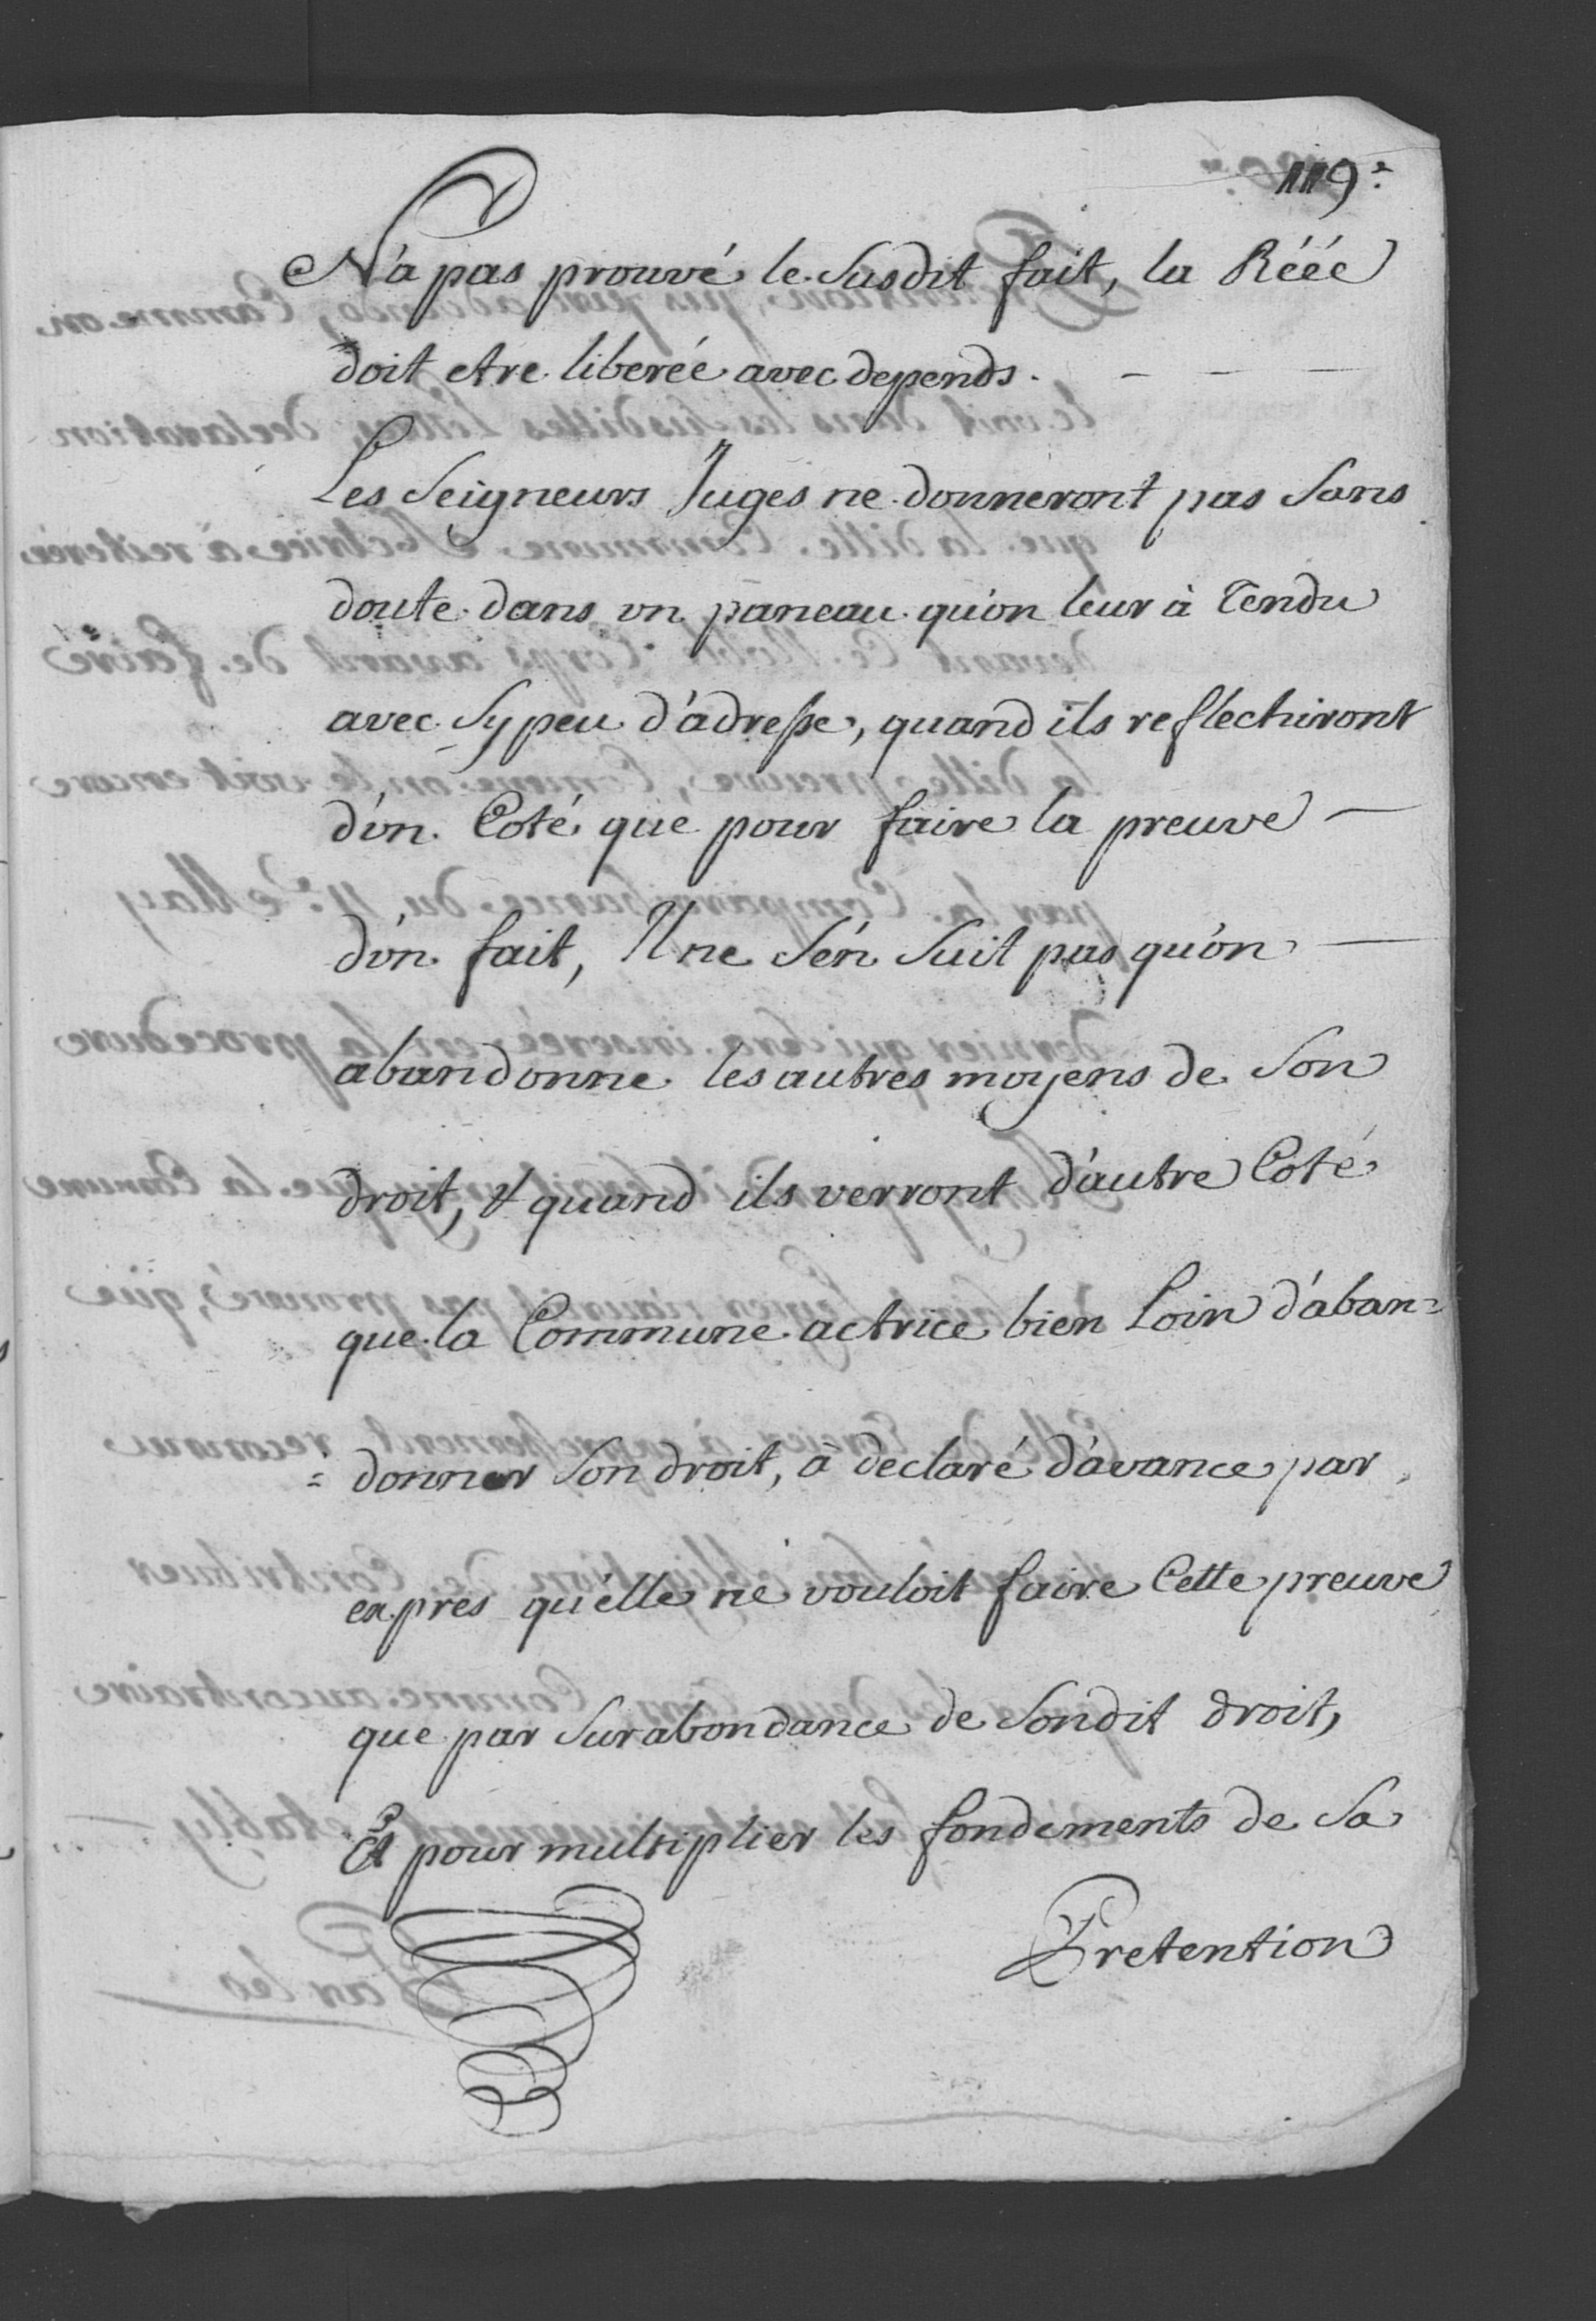 119.e
N'a pas prouvé le susdit fait, la Réée
doit etre liberée avec depends. - - -
Les Seigneurs Juges ne donneront pas sans
doute dans un paneau qu'on leur à Tendu
avec sy peu d'àdresse, quand ils reflèchiront
d'un Coté que pour faire la preuve -
d'un fait, Il ne s'en suit pas qu'on -
abandonne les autres moyens de son
droit, & quand ils verront d'autre Coté
que la Commune actrice bien Loin d'aban=
=donner son droit, à declaré d'avance par
exprès qu'elle ne vouloit faire Cette preuve
que par surabondance de sondit droit,
Et pour multiplier les fondements de sa
Pretention